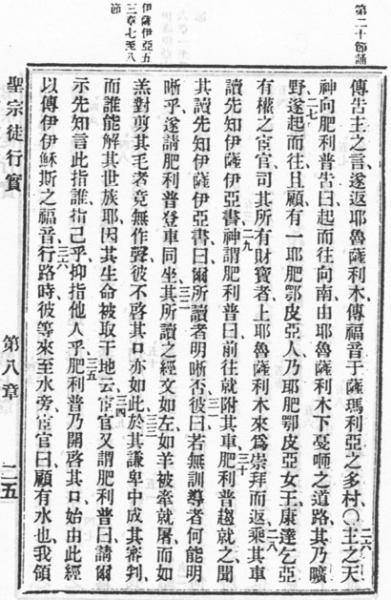 第二十節誦
伊薩伊亞五
三章七至八
節
傳告主之言遂返耶魯薩利木傳福音于薩瑪利亞之多村○二六主之天
神向肥利普告曰起而往向南由耶魯薩利木下戞咂之道路其乃曠
二七野遂起而往且顧有一耶肥鄂皮亞人乃耶肥鄂皮亞女王康達乞亞
有權之宦官司其所有財寶者上耶魯薩利木來爲崇拜二八而返乘其車
讀先知伊薩伊亞書二九神謂肥利普曰前往就附其車三十肥利普趨就之聞
其讀先知伊薩伊亞書曰爾所讀者明晰否三一彼曰若無訓導者何能明
晰乎遂請肥利普登車同坐三二其所讀之經文如左如羊被牽就屠而如
羔對剪其毛者竟無作聲彼不啓其口亦如此三三於其謙卑中成其審判
而誰能解其世族耶因其生命被取于地云三四宦官又謂肥利普曰請爾
示先知言此指誰指己乎抑指他人乎三五肥利普乃開啓其口始由此經
以傳伊伊穌斯之福音三六行路時彼等來至水旁宦官曰顧有水也我領
聖宗徒行實
第八章
二五